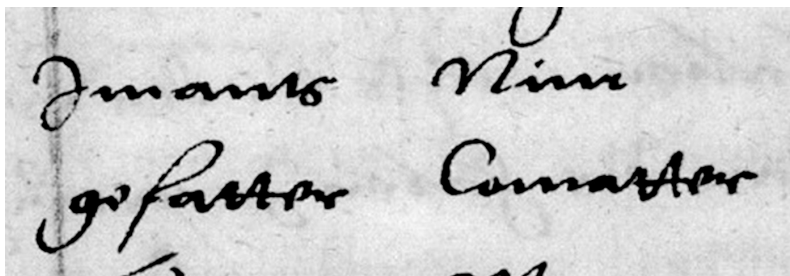 Jmants Nim
gefatter Comatter